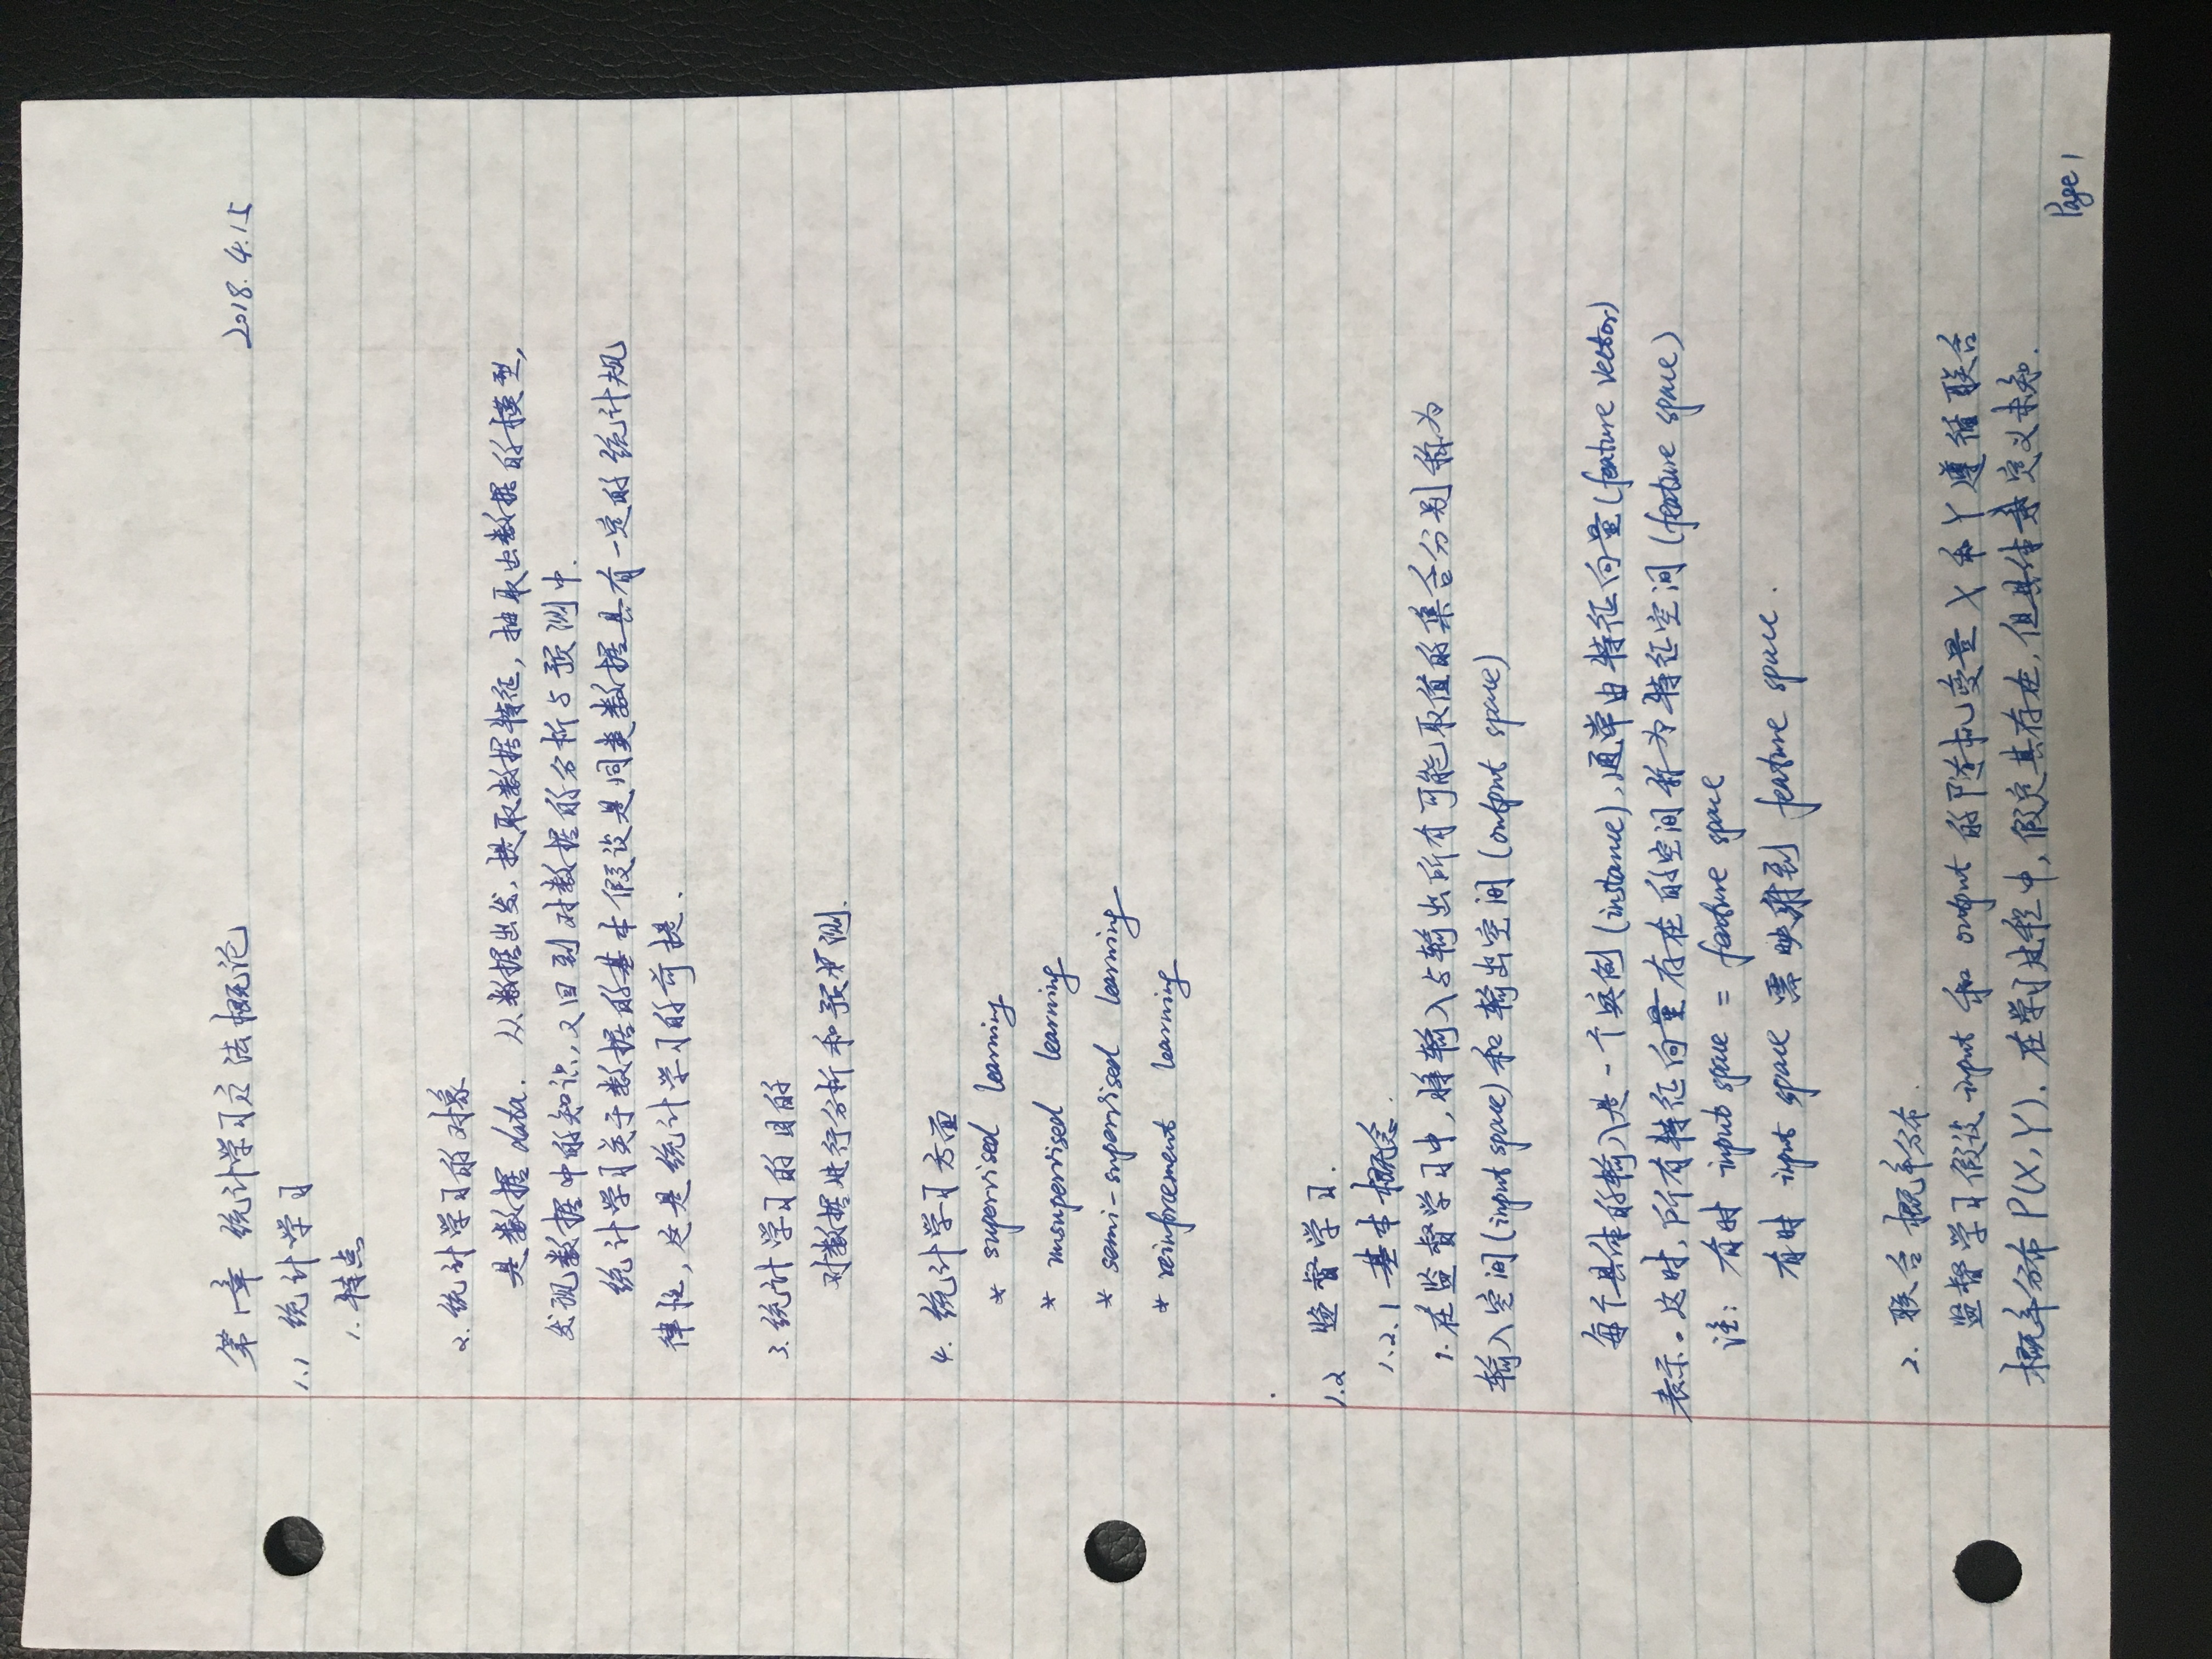 第1章 统计学习方法概论 2018.4.15
1.1 统计学习
1. 特点
2. 统计学习的对象
是数据 data. 从数据出发, 提取数据特征, 抽取出数据的模型,
发现数据中的知识, 又回到对数据的分析与预测中.
统计学习关于数据的基本假设是同类数据具有一定的统计规
律性, 这是统计学习的前提.
3. 统计学习的目的
对数据进行分析和预测.
4. 统计学习方面
* supervised learning
* unsupervised learning
* semi-supervised learning
* reinforcement learning
1.2 监督学习.
1.2.1 基本概念.
1. 在监督学习中, 将输入与输出所有可能取值的集合分别称为
输入空间(input space) 和 输出空间 (output space)
每个具体的输入是一个实例 (instance), 通常由特征向量 (feature vector)
表示。这时, 所有特征向量存在的空间称为特征空间 (feature space)
注: 有时 input space = feature space
有时 input space 需映射到 feature space.
2. 联合概率分布.
监督学习假设 input 和 output 的随机变量 X 和 Y 遵循联合
概率分布 P(X, Y). 在学习过程中, 假定其存在, 但具体定义未知.
Page 1